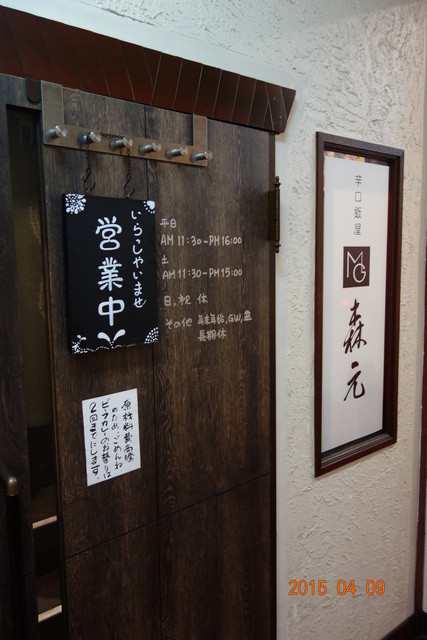 いらっしゃいませ
営業中
平日
AM 11:30~PM16:00
土
AM11:30~PM15:00
日,祝 休
その他 年末年始,GW,盆
長期休
原材料費高騰
のため、ごめんね
ビーフカレーのお替りは
2回までにします。
辛口飯屋
MG
森元
2015 04 09